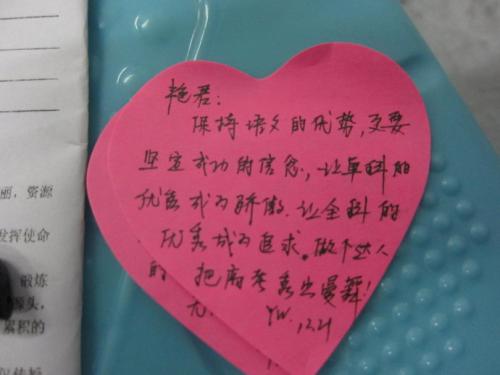 艳君:
保持语文的优势,更要
坚定成功的信念,让单科的
优秀成为骄傲,让全科的
优秀成为追求。做个达人
的 把高考秀出曼舞!
YW. 12.21
丽,资源
发挥使命
锻炼
源头,
累积的